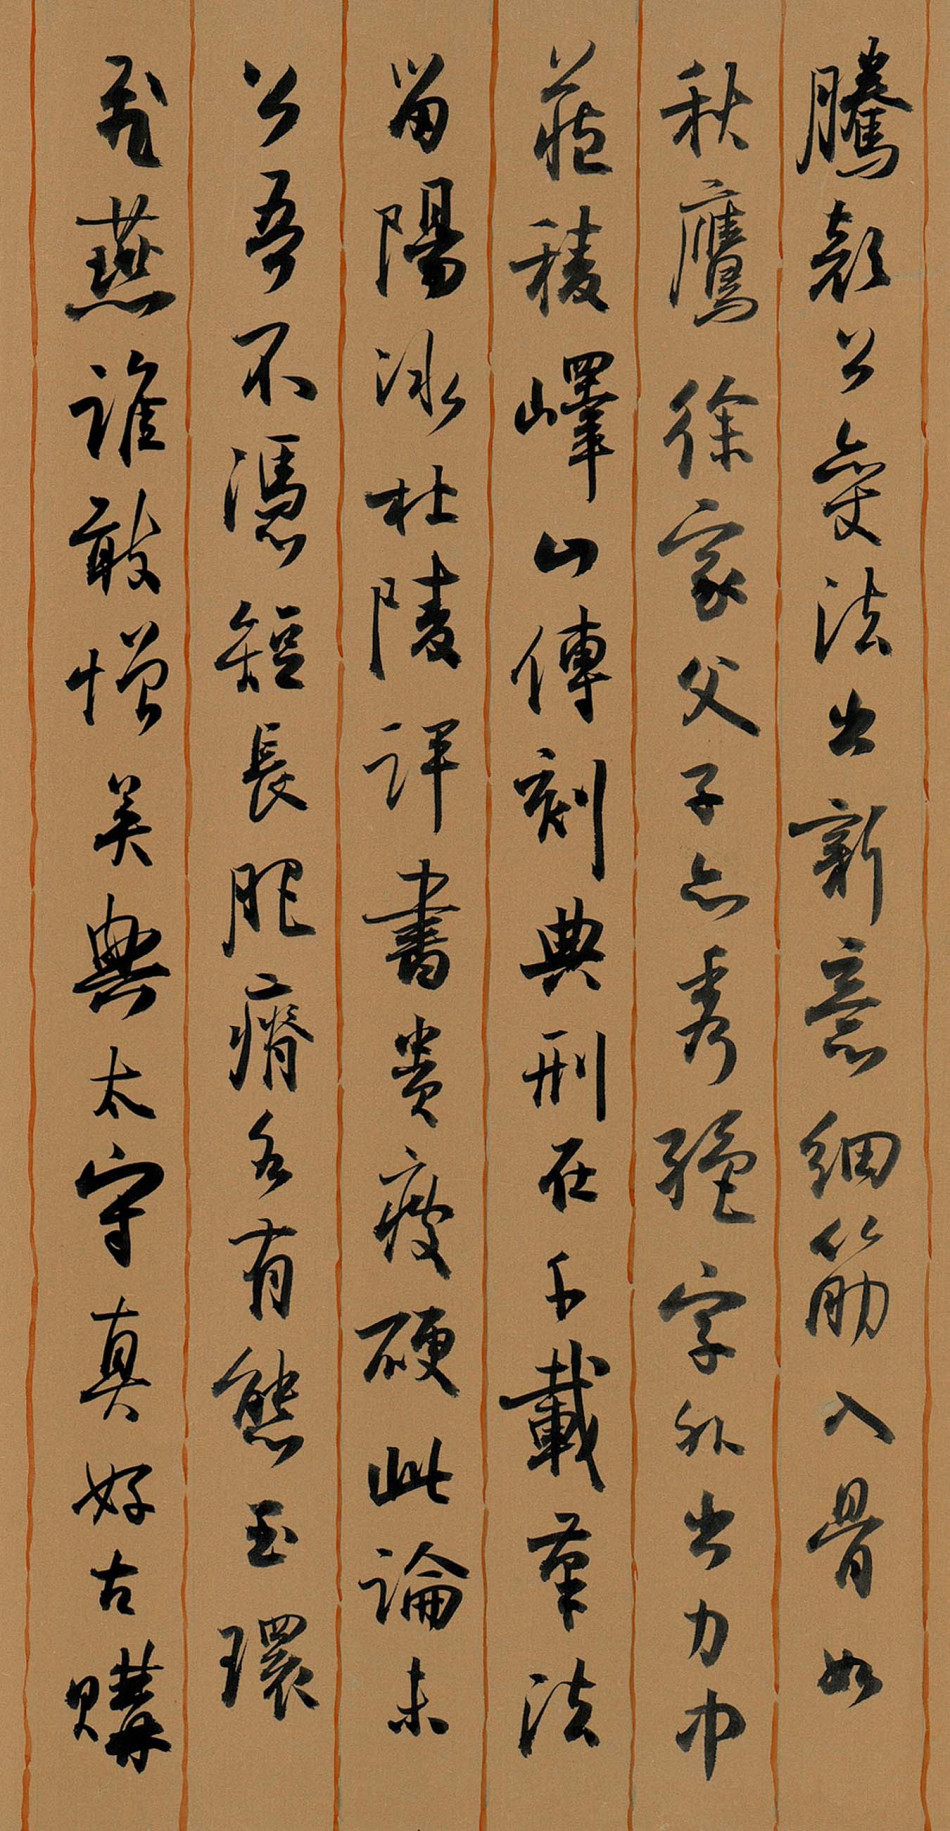 騰顏公變法出新意細筋入骨如
秋鷹徐家父子亦秀絕字外出力中
藏稜嶧山傳刻典刑在千載筆法
留陽冰杜陵評書貴瘦硬此論未
公吾不憑短長肥瘠各有態玉環
飛燕誰敢憎吳興太守真好古購